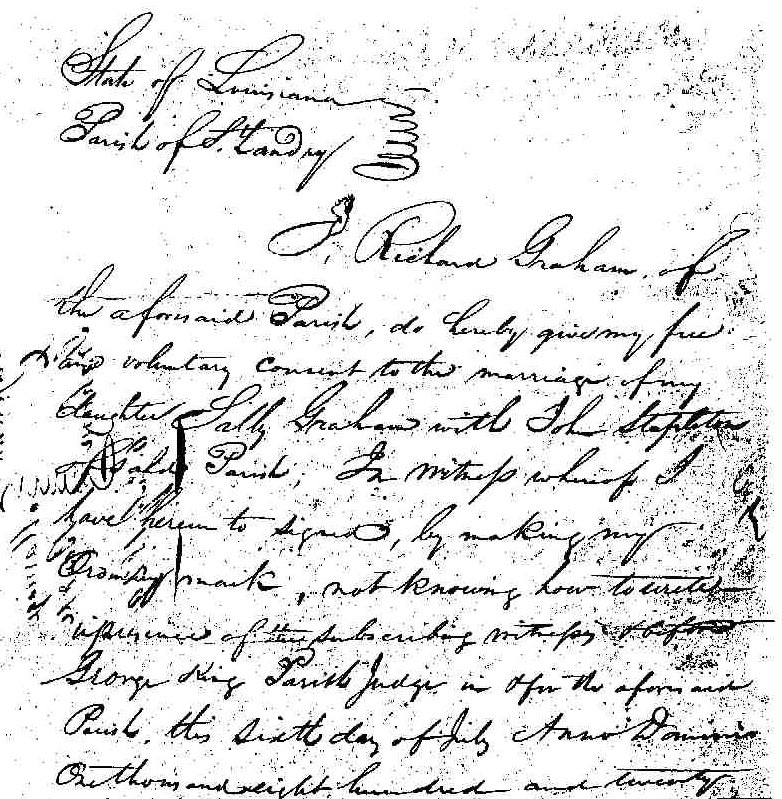 State of Louisiana
Parish of St. Landry
I, Richard Graham, of
the aforesaid Parish, do hereby give my free
and voluntary consent to the marriage of my
daughter Sally Graham with John Stapleton
of Said Parish, In witness whereof I
have herein to signed, by making my
Ordinary mark, not knowing how to write
in presence of the subscribing witness & before
George King Parish Judge in & for the aforesaid
Parish, this sixth day of July Anno Domini
One thousand eight hundred and twenty